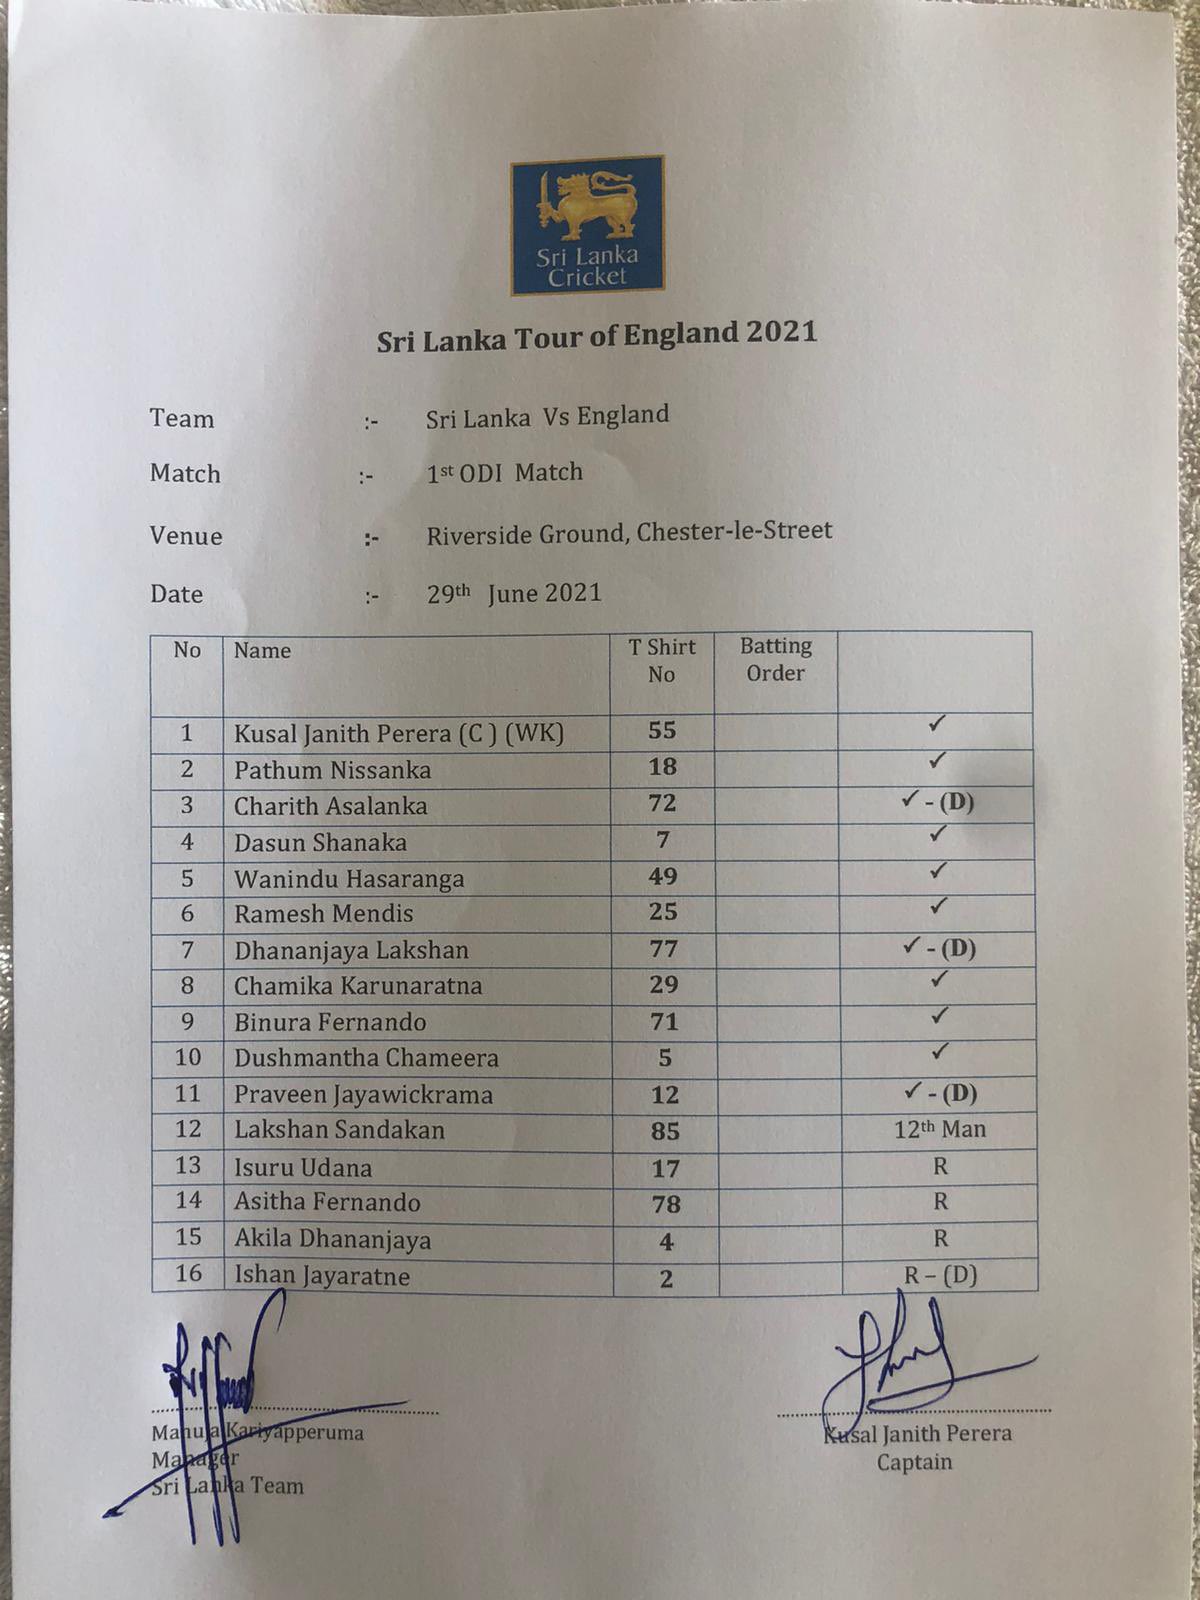 Sri Lanka
Cricket
Sri Lanka Tour of England 2021
Team :- Sri Lanka Vs England
Match :- 1st ODI Match
Venue :- Riverside Ground, Chester-le-Street
Date :- 29th June 2021
No Name T Shirt No Batting Order
1 Kusal Janith Perera (C ) (WK) 55 ✓
2 Pathum Nissanka 18 ✓
3 Charith Asalanka 72 ✓ - (D)
4 Dasun Shanaka 7 ✓
5 Wanindu Hasaranga 49 ✓
6 Ramesh Mendis 25 ✓
7 Dhananjaya Lakshan 77 ✓ - (D)
8 Chamika Karunaratna 29 ✓
9 Binura Fernando 71 ✓
10 Dushmantha Chameera 5 ✓
11 Praveen Jayawickrama 12 ✓ - (D)
12 Lakshan Sandakan 85 12th Man
13 Isuru Udana 17 R
14 Asitha Fernando 78 R
15 Akila Dhananjaya 4 R
16 Ishan Jayaratne 2 R – (D)
Manuja Kariyapperuma
Manager
Sri Lanka Team
Kusal Janith Perera
Captain